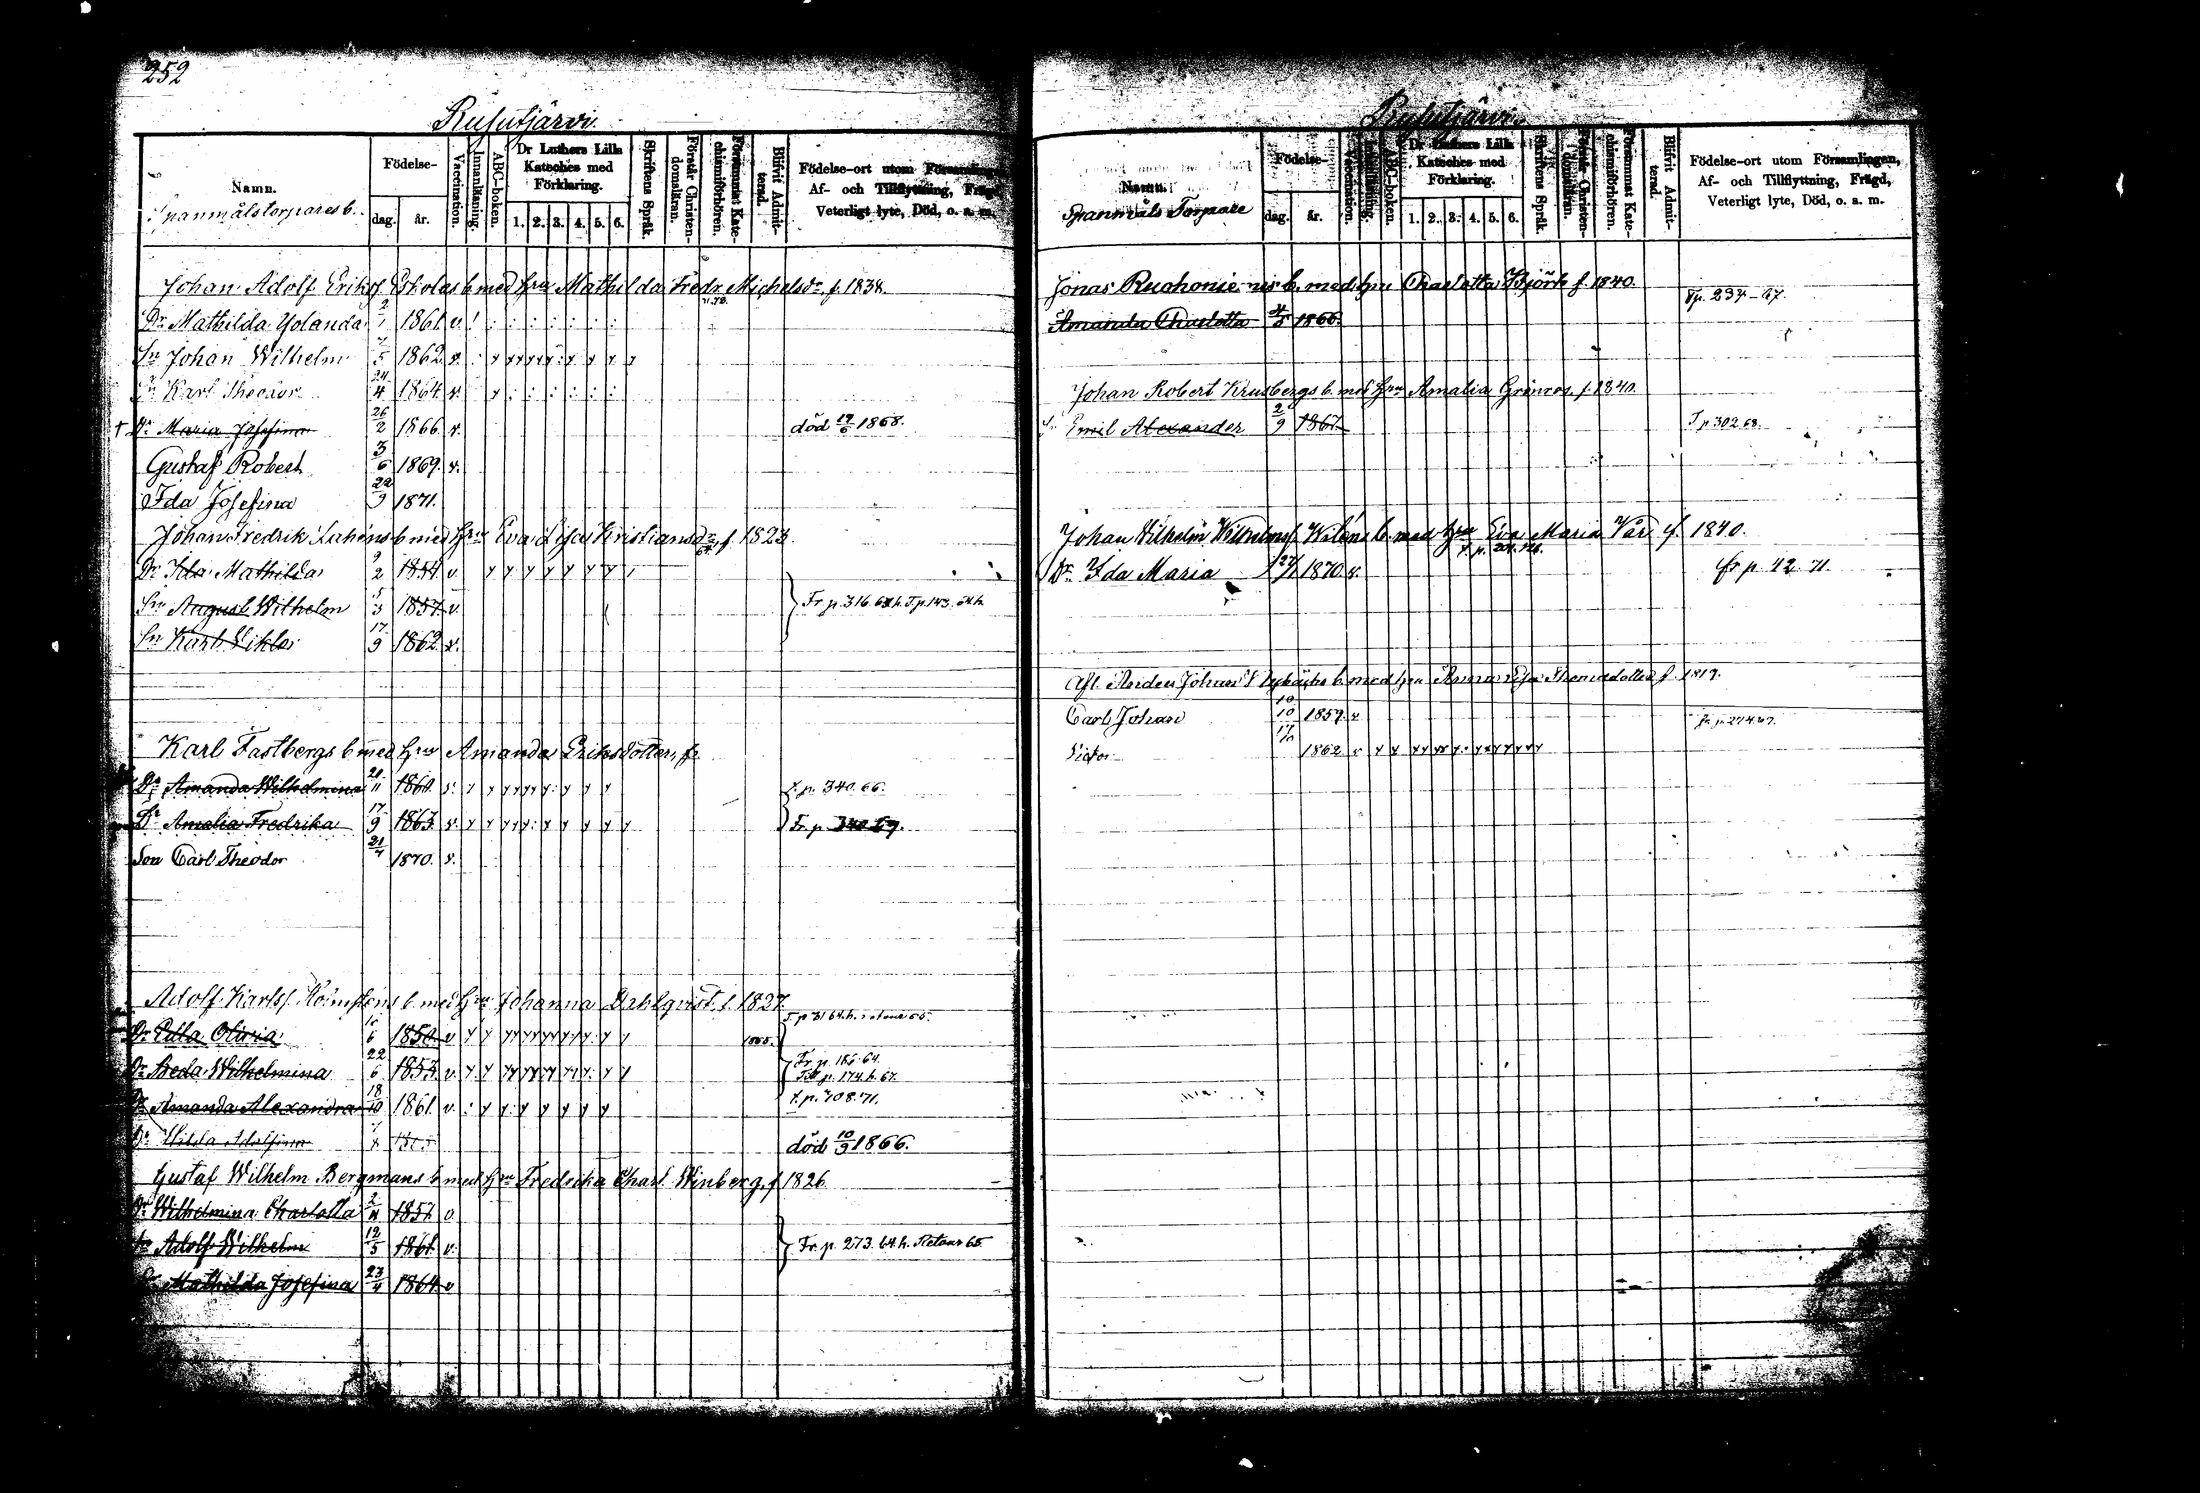 252
Rusutjärvi.
Namn.
Spanmålstorpares b.
Födelse-
dag. år.
Vaccination.
Innanläsning.
ABC-boken.
Dr Luthers Lilla Kateches med Förklaring.
1. 2. 3. 4. 5. 6.
Skriftens Språk.
Förstår Christendomsläran.
Försummat Katechismiförhören.
Blifvit Admitterad.
Födelse-ort utom Församlingen,
Af- och Tillflyttning, Frägd,
Veterligt lyte, Död, o. a. m.
Johan Adolf Eriksf Eskolas b med Hru Mathilda Fredr. Michelsdr f. 1838.
Dr Mathilda Yolanda 2/1 1861. v.
Sn Johan Wilhelm 7/5 1862 v.
Sn Karl Theodor 24/4 1864. v.
† Dr Maria Josefina 26/2 1866. v. död 1868.
Gustaf Robert 3/6 1869. v.
Ida Josefina 22/9 1871.
Johan Fredrik b med Hru Eva Lisa Kristiansdr f. 1823.
Dr Ida Mathilda 9/2 1854. v.
Sn August Wilhelm 5/3 1857. v. Fr p. 316. T.p. 143.
Sn Karl Viktor 17/9 1862. v.
Karl Fastbergs b med Hru Amanda Eriksdotter, f.
Dr Amanda Wilhelmina 21/11 1860. v. f. p. 340. 66.
Dr Amalia Fredrika 17/9 1863. v. Fr p.
Son Carl Theodor 21/7 1870. v.
Adolf Karlsf. Holmstens b med Hru Johanna Dahlqvist, f. 1827.
Dr Edla Olivia 6 1850. v 1865.
Dr Beda Wilhelmina 22/6 1853. v. Fr. p. 186. 64.
p. 174. h. 67.
Dr Amanda Alexandra 18/10 1861. v. f. p. 708. 71.
Dr Hilda Adolfina död 10/9 1866.
Gustaf Wilhelm Bergmans b med Hru Fredrika Charl. Winberg, f 1826.
Dr Wilhelmina Charlotta 2/11 1857. v.
Sn Adolf Wilhelm 12/5 1861. v. Fr. p. 273. 64. h. Retour 65
Dr Mathilda Josefina 23/4 1864. v
Rusutjärvi.
Namn.
Spannmåls Torpare
Födelse-
dag. år.
Vaccination.
Innanläsning.
ABC-boken.
Dr Luthers Lilla Kateches med Förklaring.
1. 2. 3. 4. 5. 6.
Skriftens Språk.
Förstår Christendomsläran.
Försummat Katechismiförhören.
Blifvit Admitterad.
Födelse-ort utom Församlingen,
Af- och Tillflyttning, Frägd,
Veterligt lyte, Död, o. a. m.
Jonas b. med Hru Charlotta Björk f. 1840.
Tp. 234-67.
Amanda Charlotta 1866.
Johan Robert Krusbergs b. med Hru Amalia Grönroos, f. 1840.
Sn Emil Alexander 2/9 1867. T p 302 68.
Johan Wilhelm Wilhelmsf. b. med Hru Eva Maria Vår f. 1840.
Dr Ida Maria 1870. v. fr p. 42. 71.
Afl. Anders Johan b med Hru Anna Lisa Thomasdotter f. 1819.
Carl Johan 10/10 1859. v fr p. 274. 67.
Victor 1862 v